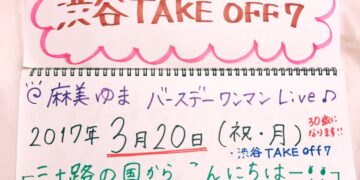 渋谷TAKE OFF7
@麻美ゆま バースデーワンマン Live♪
2017年 3月20日(祝・月)
30歳に
なります!!
・渋谷TAKE OFF7
「三十路の国から こんにちはー!!」